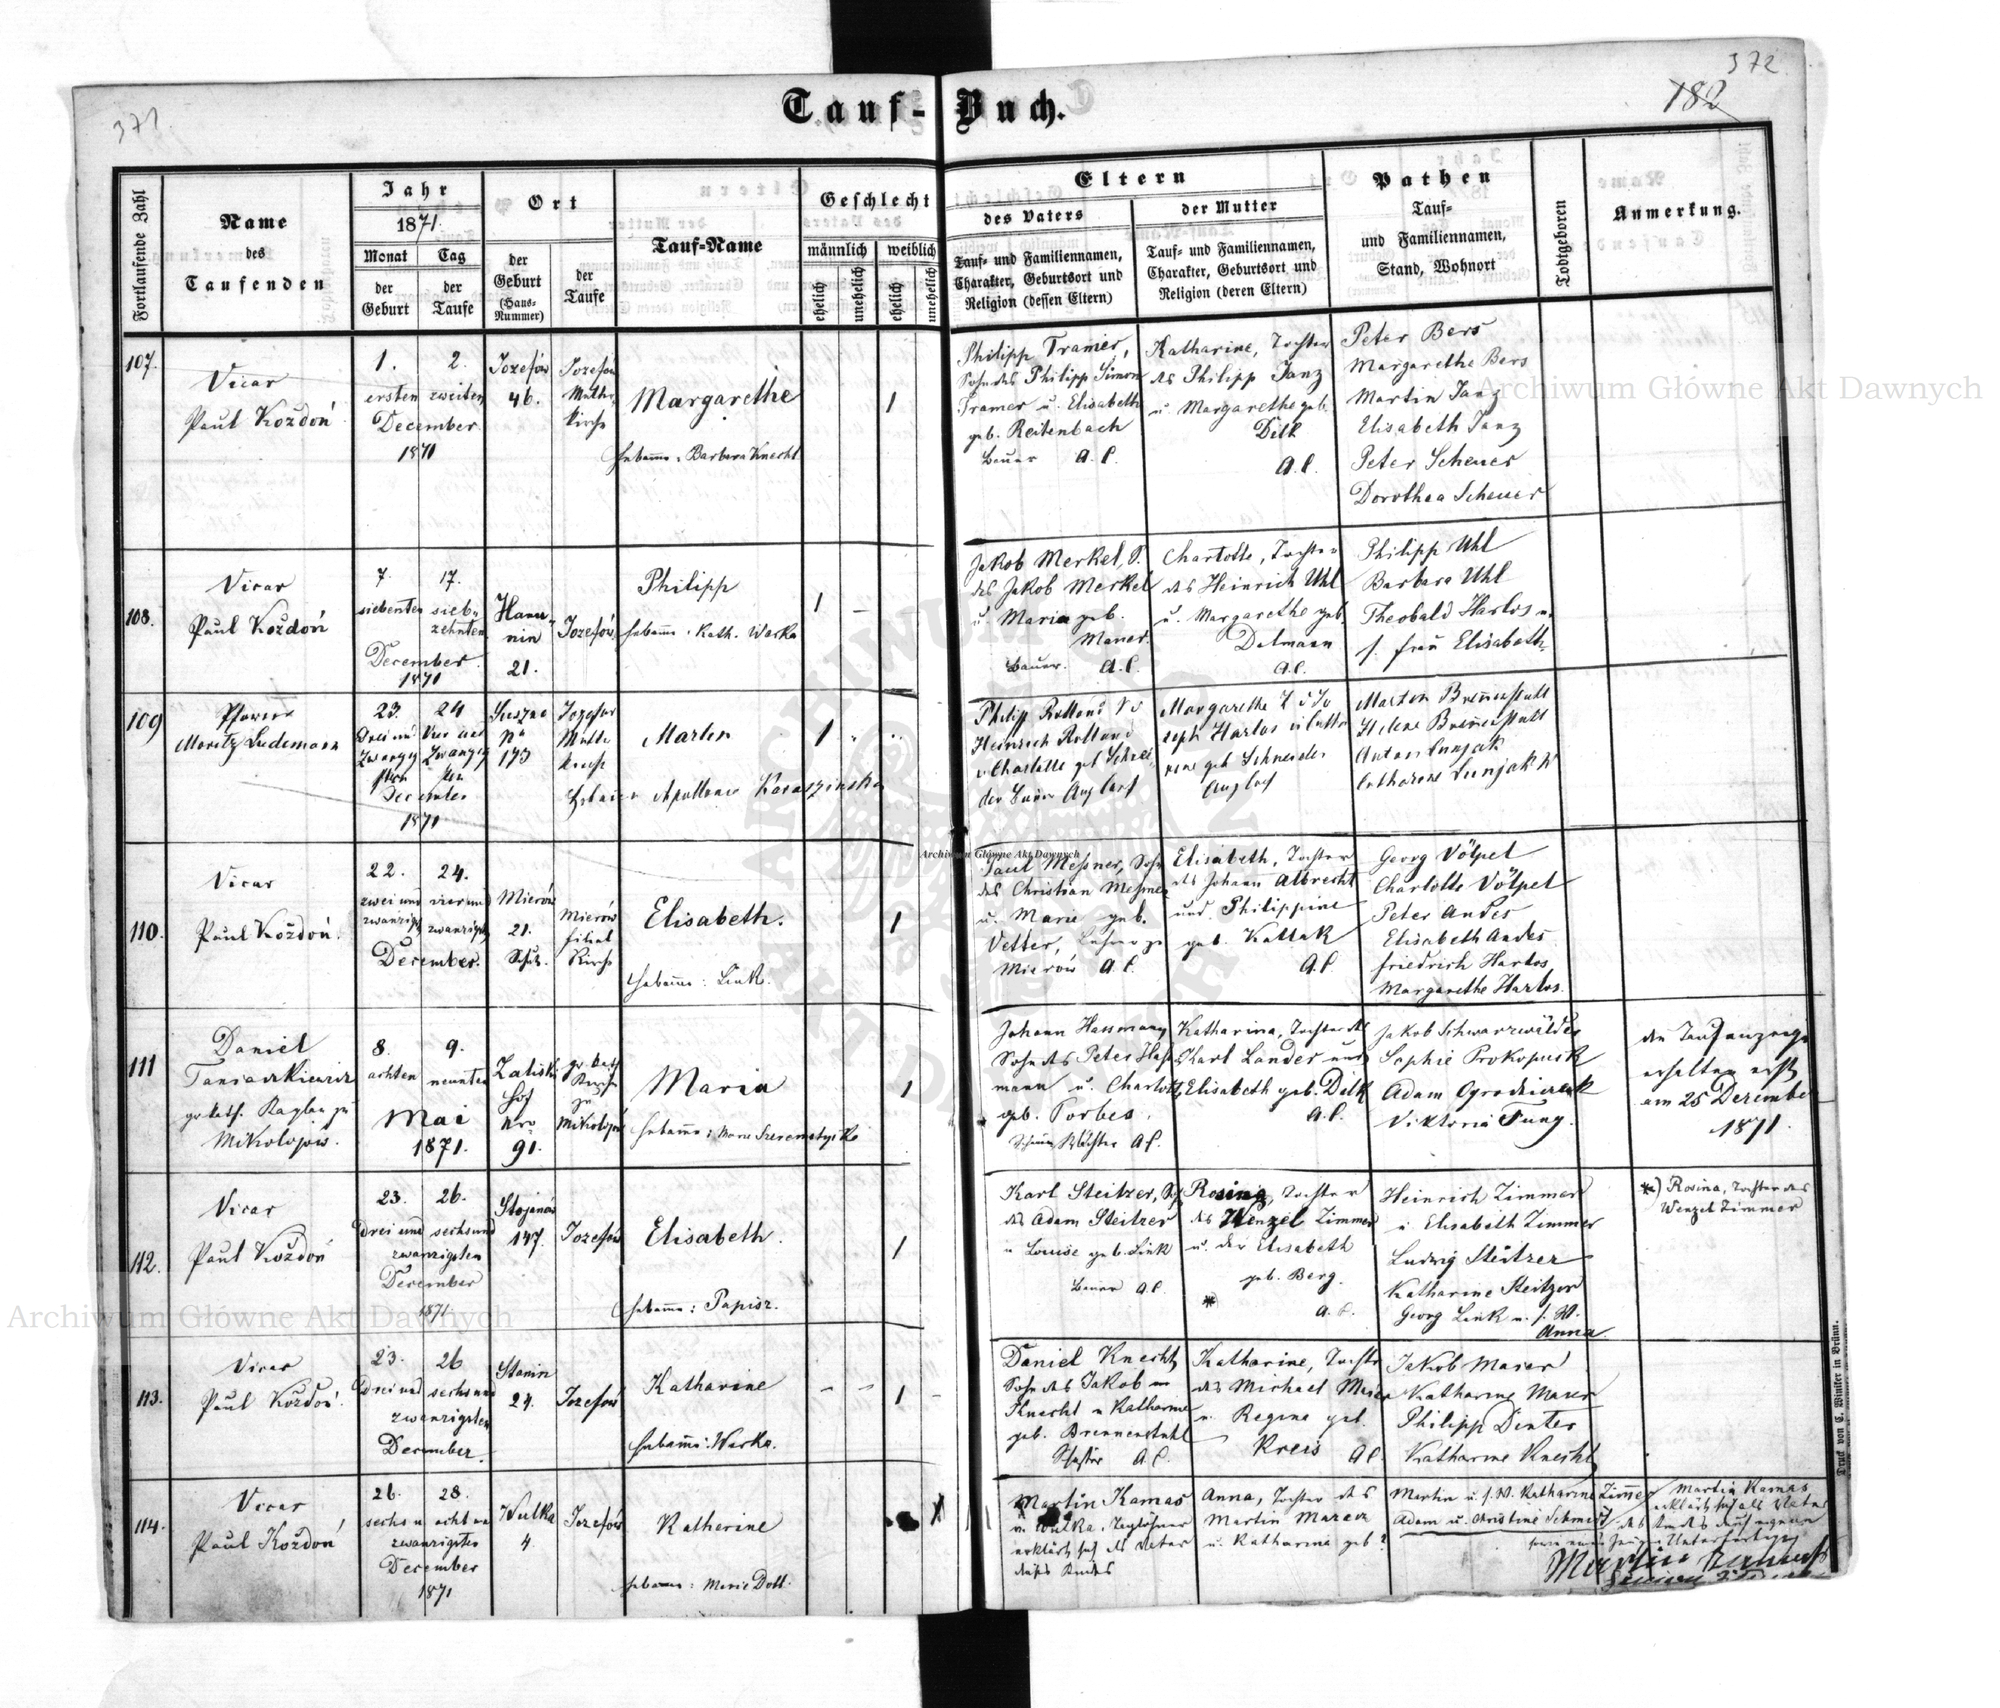 371
372
182
Tauf-Buch.
Fortlaufende Zahl
Name
des
Taufenden
Jahr
1871.
Monat
Tag
der
Geburt
der
Taufe
Ort
der
Geburt
(Haus-
Nummer)
der
Taufe
Tauf-Name
Geschlecht
männlich
weiblich
ehelich
unehelich
ehelich
unehelich
Eltern
des Vaters
Tauf- und Familiennamen,
Charakter, Geburtsort und
Religion (dessen Eltern)
der Mutter
Tauf- und Familiennamen,
Charakter, Geburtsort und
Religion (deren Eltern)
Pathen
Tauf-
und Familiennamen,
Stand, Wohnort
Todtgeboren
Anmerkung.
107.
Vicar
Paul Kożdoń
1. 2.
ersten zweiten
December
1871
Jozefów
46.
Jozefow
Mutter
kirche
Margarethe
Hebamme: Barbara Knecht
1
Philipp Tramer,
Sohn des Philipp Simon
Tramer u. Elisabeth
geb. Reitenbach
Bauer A.C.
Katharine, Tochter
des Philipp Janz
u. Margarethe geb.
Dilk
A.C.
Peter Bers
Margarethe Bers
Martin Janz
Elisabeth Janz
Peter Scheuer
Dorothea Scheuer
108.
Vicar
Paul Kożdoń
7. 17.
siebenten sieb-
zehnten
December
1871
Hanu-
nin
21.
Jozefów
Philipp
Hebamme: Kath. Warka
1
Jakob Merkel, S.
des Jakob Merkel
u. Maria geb.
Mauer.
Bauer. A.C.
Charlotte, Tochter
des Heinrich Uhl
u. Margarethe geb.
Dalmann
A.C.
Philipp Uhl
Barbara Uhl
Theobald Harlos u.
s. Frau Elisabeth
109
Pfarrer
Moritz Ludemann
23. 24
Drei und Vier und
Zwanzig Zwanzig
sten sten
December
1871
173
Jozefow
Mutter
kirche
Martin
Hebamme Apollonia Karaszinska
1
Philipp Rolland
Heinrich Rolland
u Charlotte geb Schnei-
der
Margarethe
seph Harlos
geb Schneider
Martin Brennenstuhl
Helene Brennenstuhl
Anton Lunjak
Catharine Lunjak
110.
Vicar
Paul Kożdoń.
22. 24.
zwei und vier und
zwanzigst zwanzigst
December.
Mierów
21.
Schul.
Mierów
filial
Kirche
Elisabeth.
Hebamme: Link.
1
Paul Messner, Sohn
des Christian Messner
u. Marie geb.
Vetter, Lehrer zu
Mierów A.C.
Elisabeth, Tochter
des Johann Albrecht
und Philippine
geb. Kattak
A.C.
Georg Völpel
Charlotte Völpel
Peter Andes
Elisabeth Andes
Friedrich Harlos
Margarethe Harlos.
111
Daniel
Taniaczkiewicz
gr. kath. Kaplan zu
Mikolajów.
8. 9.
achten neunten
Mai
1871.
Zaliski
Hof
Nro
91.
gr. kath
Kirche
zu
Mikolajów
Maria
Hebamme: Marie
1
Johann Hassmann
Sohn des Peter Hass
mann u. Charlotte
geb. Forbes.
A.C.
Katharina, Tochter des
Karl Lander und
Elisabeth geb. Dilk
A.C.
Jakob Schwarzwälder
Sophie Prokopurk
Adam Ogrodniczek
Viktoria Tung.
den Taufanzeige
erhalten erst
am 25 Dezember
1871.
112.
Vicar
Paul Kożdoń
23. 26.
Drei und sechs und
zwanzigsten
December
1871.
Stojanów
147.
Jozefów
Elisabeth.
Hebamme: Papisz.
1
Karl Steitzer, Sohn
des Adam Steitzer
u Louise geb. Link
Bauer A.C.
Rosina, Tochter
des Wenzel Zimmer
u. der Elisabeth
geb. Berg.
*
A.C.
Heinrich Zimmer
u Elisabeth Zimmer
Ludwig Steitzer
Katharine Steitzer
Georg Link u. s. W.
Anna
*) Rosina, Tochter des
Wenzel Zimmer
113.
Vicar
Paul Kożdoń.
23. 26
Drei und sechs und
zwanzigsten
December.
Stanin
24.
Jozefów
Katharine
Hebamme: Warka.
1
Daniel Knecht
Sohn des Jakob
Knecht u Katharine
geb. Brennenstuhl
A.C.
Katharine, Tochter
des Michael Maier
u. Regina geb.
Kreis A.C.
Jakob Maier
Katharine Maier
Philipp Dinter
Katharine Knecht
114.
Vicar
Paul Kożdoń
26. 28.
sechs u acht u
zwanzigsten
December
1871
Wulka
4.
Jozefów
Katherine
Hebamme: Marie Doll.
Martin Kamas
in Wulka, Taglöhner
erklärt sich als Vater
dieses Kindes
Anna, Tochter des
Martin Mazen
u. Katharina geb?
Martin u. s. W. Katharine Zimmer
Adam u. Christine Schmidt
Martin Kamas
erklärt sich als Vater
des Kindes
Druck von C. Winiker in Brünn.
Archiwum Główne Akt Dawnych
Archiwum Główne Akt Dawnych
Archiwum Główne Akt Dawnych